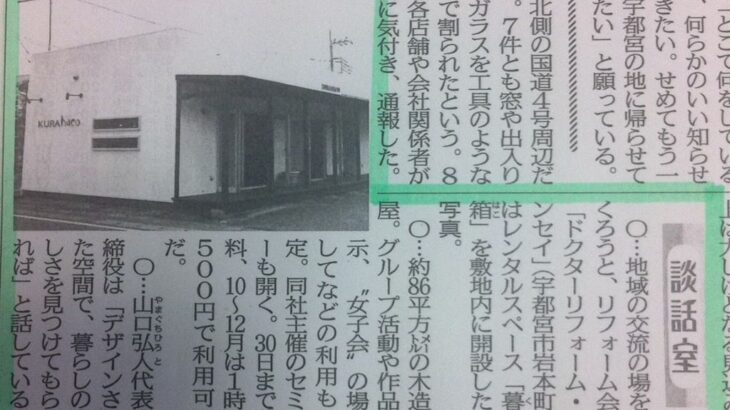 どこで何をしている
、何らかのいい知らせ
きたい。せめてもう一
宇都宮の地に帰らせて
たい」と願っている。
北側の国道4号周辺だ
。7件とも窓や出入り
ガラスを工具のような
で割られたという。8
各店舗や会社関係者が
に気付き、通報した。
KURAhaco
談話室
〇…地域の交流の場を
くろうと、リフォーム会
「ドクターリフォーム・
ンセイ」(宇都宮市岩本町
はレンタルスペース「暮
箱」を敷地内に開設した
写真。
〇…約86平方㍍の木造
屋。グループ活動や作品
示、〝女子会〟の場
してなどの利用も
定。同社主催のセミ
ーも開く。30日まで
料、10~12月は1時
500円で利用可
だ。
〇…山口弘人代表
締役は「デザインさ
た空間で、暮らしの
しさを見つけてもら
れば」と話している